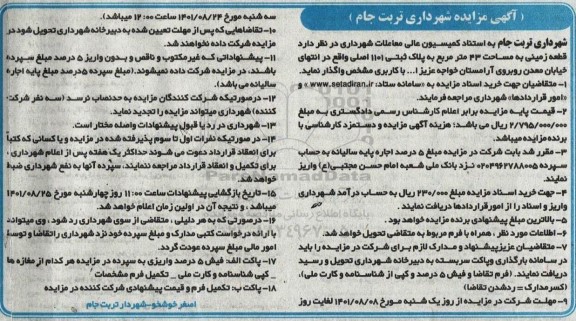 ( آگهی مزایده شهرداری تربت جام )
شهرداری تربت جام به استناد کمیسیون عالی معاملات شهرداری در نظر دارد
قطعه زمینی به مساحت ۴۳ متر مربع به پلاک ثبتی (۱۱۰ اصلی واقع در انتهای
خیابان معدن روبروی آرامستان خواجه عزیز) ... با کاربری مشخص واگذار نماید.
۱- متقاضیان جهت خرید اسناد مزایده به «سامانه ستاد: www.setadiran.ir» و
«امور قراردادها» شهرداری مراجعه فرمایند.
۲- قیمت پایه مزایده برابر اعلام کارشناس رسمی دادگستری به مبلغ
۲/۷۹۵/۰۰۰/۰۰۰ ریال می باشد؛ هزینه آگهی مزایده و دستمزد کارشناسی با
برنده مزایده میباشد.
۳- مقرر شد بابت شرکت در مزایده مبلغ ۵ درصد اجاره پایه سالیانه به حساب
سپرده ۰۲۰۴۹۶۲۷۸۸۰۰۵ نزد بانک ملی شعبه امام حسن مجتبی(ع) واریز
نمایند.
۴- جهت خرید اسناد مزایده مبلغ ۲۳۰/۰۰۰ ریال به حساب درآمد شهرداری
واریز و اسناد را از امورقراردادها دریافت نمایند.
۵- بالاترین مبلغ پیشنهادی برنده مزایده خواهد بود.
۶- اطلاعات مورد نظر، همراه با فرم مربوط به متقاضی تحویل خواهد شد.
۷- متقاضیان عزیز پیشنهاد و مدارک لازم برای شرکت در مزایده را باید
در سامانه بارگذاری وپاکت سربسته به دبیرخانه شهرداری تحویل و رسید
دریافت نمایند. (فرم تقاضا و فیش ۵ درصد و کپی از شناسنامه و کارت ملی).
(کسر مدارک = رد شدن تقاضا)
۹- مهلت شرکت در مزایده از روز یک شنبه مورخ ۱۴۰۱/۰۸/۰۸ لغایت روز
سه شنبه مورخ ۱۴۰۱/۰۸/۲۴ ساعت ۱۲:۰۰ میباشد).
۱۰- تقاضاهایی که پس از مهلت تعیین شده به دبیرخانه شهرداری تحویل شود در
مزایده شرکت داده نخواهند شد.
۱۱- پیشنهاداتی که غیر مکتوب و ناقص و بدون واریز ۵ درصد مبلغ سپرده
باشند، در مزایده شرکت داده نمیشوند. (مبلغ سپرده ۵درصد مبلغ پایه اجاره
سالیانه می باشد).
۱۲- در صورتیکه شرکت کنندگان مزایده به حدنصاب نرسد (سه نفر شرکت
کننده) شهرداری میتواند مزایده را تجدید نماید.
۱۳- شهرداری در رد یا قبول پیشنهادات واصله مختار است.
۱۴- در صورتیکه نفرات اول تا سوم پذیرفته شده در مزایده و یا کسانی که کتباً
برای انعقاد قرارداد دعوت می شوند حداکثر یک هفته پس از اعلام شهرداری ،
برای تکمیل و انعقاد قرارداد مراجعه ننمایند، سپرده آنها به نفع شهرداری ضبط
خواهد شد.
۱۵- تاریخ بازگشایی پیشنهادات ساعت ۱۱:۰۰ روز چهارشنبه مورخ ۱۴۰۱/۰۸/۲۵
میباشد، و نتیجه آن در اولین زمان اعلام خواهد شد.
۱۶- در صورتی که به هر دلیلی ، متقاضی از سوی شهرداری رد شود، وی میتواند
با ارائه درخواست کتبی مدارک و مبلغ سپرده خود نزد شهرداری را تقاضا و توسط
امور مالی مبلغ سپرده عودت گردد.
۱۷- پاکت الف: فیش ۵ درصد واریزی به سپرده در مزایده هر کدام از مغازه ها
_ کپی شناسنامه و کارت ملی _ تکمیل فرم مشخصات
۱۸- پاکت ب: تکمیل فرم و قیمت پیشنهادی شرکت کننده در مزایده
اصغر خوشخو-شهردار تربت جام